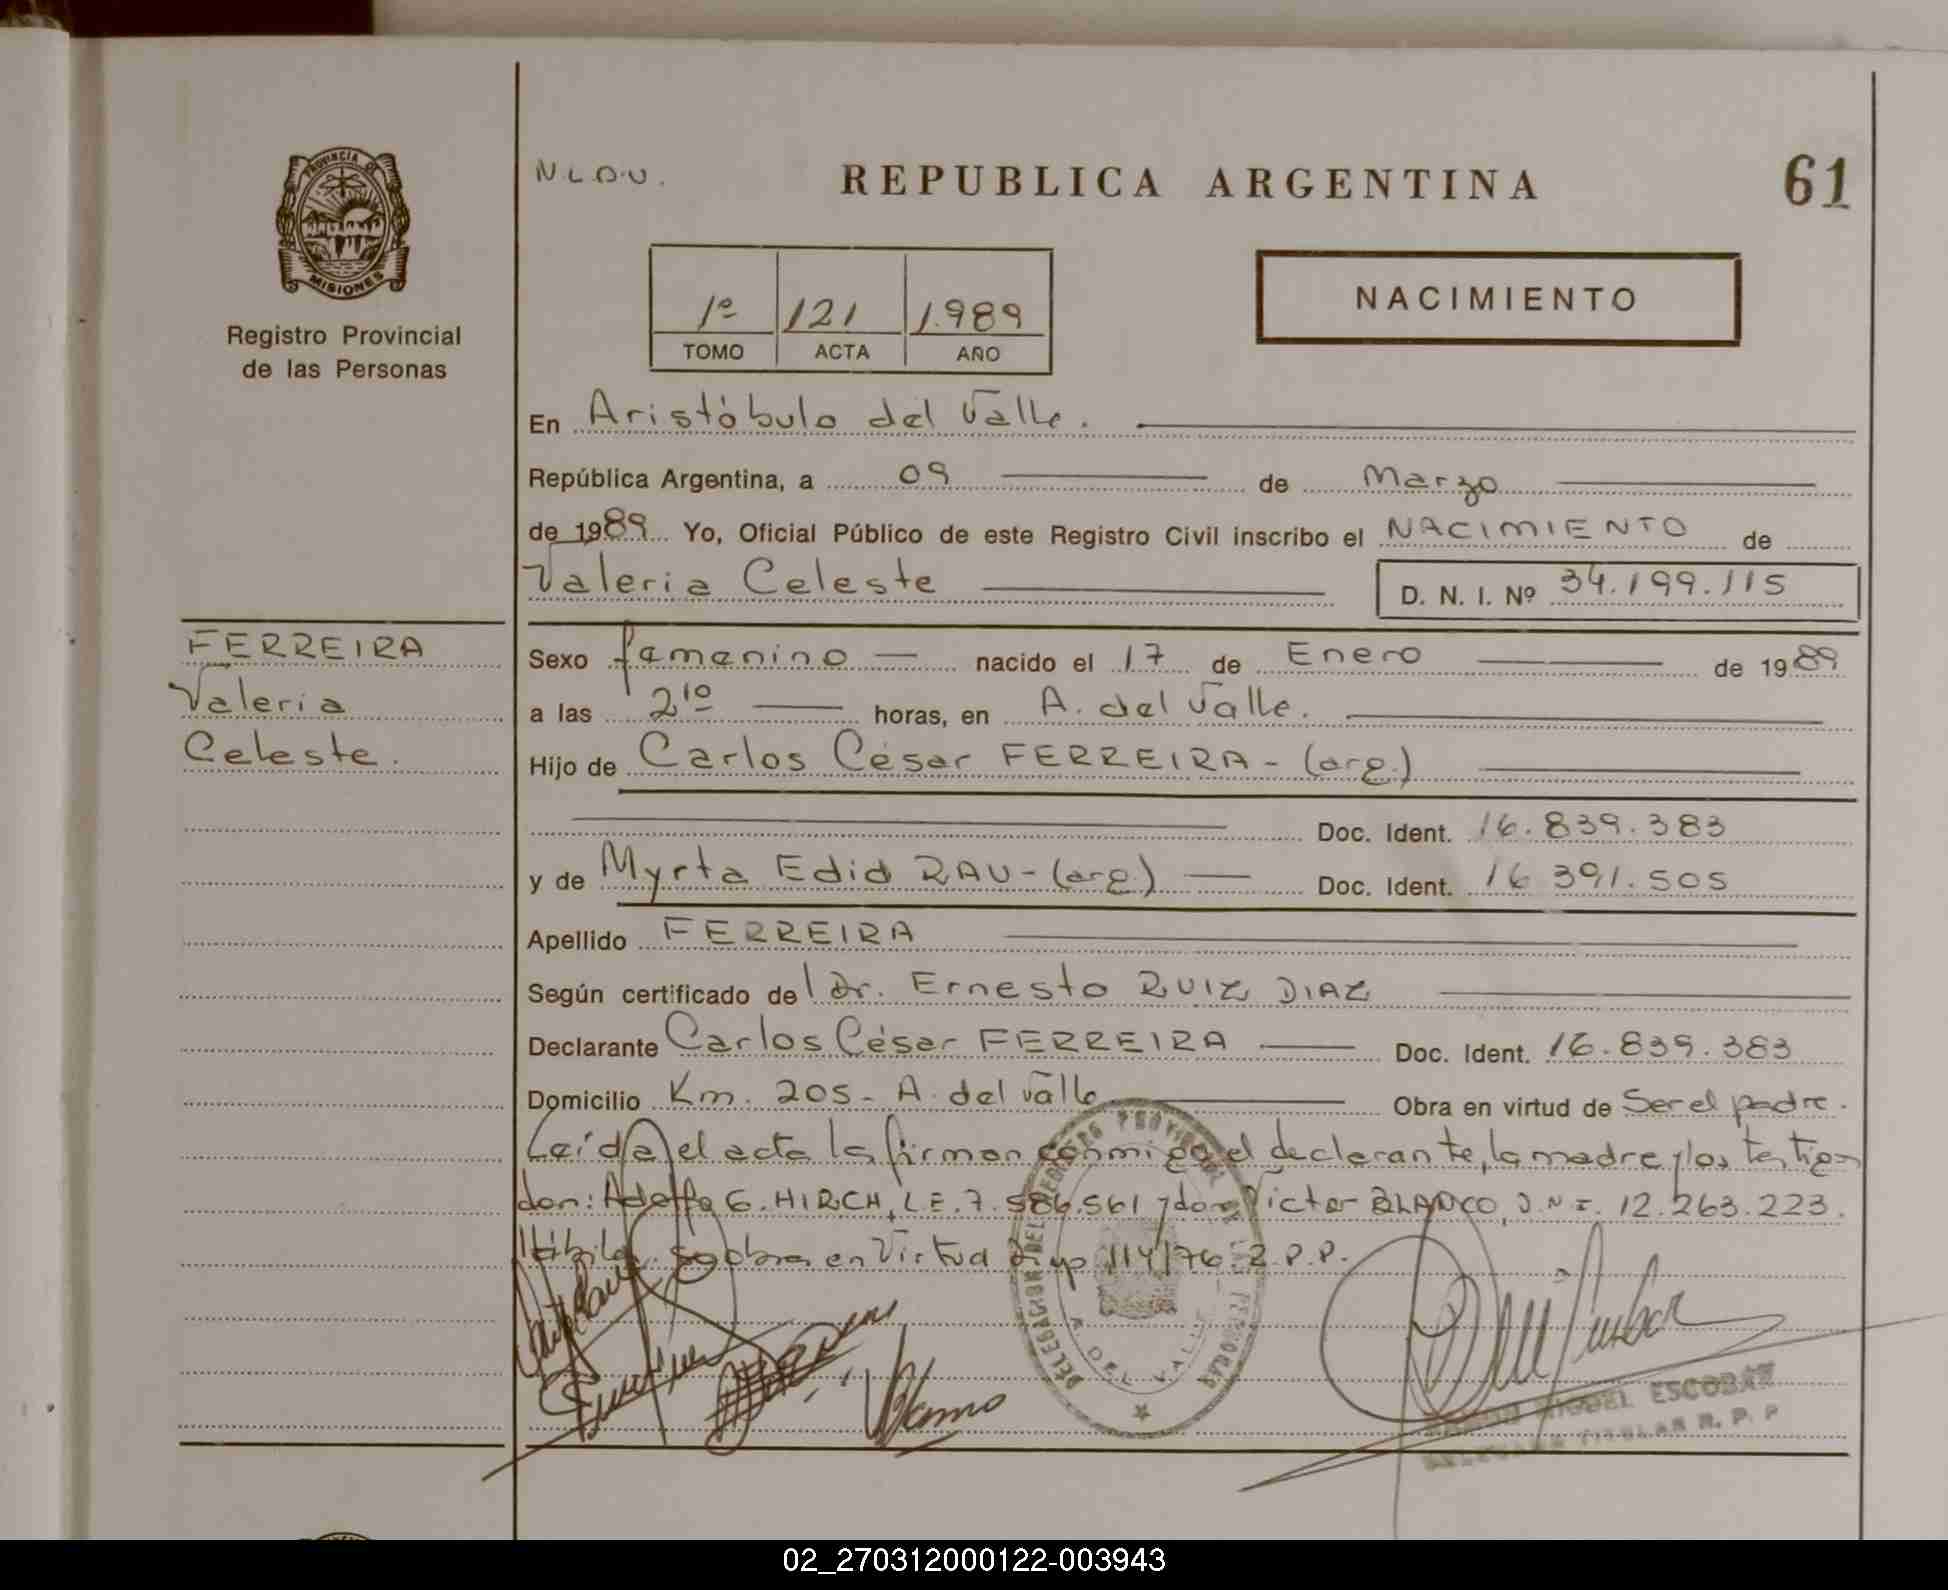 N.L.D.U.
REPUBLICA ARGENTINA
61
PROVINCIA D
MISIONES
Registro Provincial
de las Personas
1º 121 1.989
TOMO ACTA AÑO
NACIMIENTO
En Aristóbulo del Valle.
República Argentina, a 09 de Marzo
de 1989 Yo, Oficial Público de este Registro Civil inscribo el NACIMIENTO de
Valeria Celeste D. N. I. Nº 34.199.115
FERREIRA
Valeria
Celeste.
Sexo femenino nacido el 17 de Enero de 1989
a las 2¹⁰ horas, en A. del Valle.
Hijo de Carlos César FERREIRA - (arg.)
Doc. Ident. 16.839.383
y de Myrta Edid RAU - (arg.) Doc. Ident. 16 391.505
Apellido FERREIRA
Según certificado del Dr. Ernesto RUIZ DIAZ
Declarante Carlos César FERREIRA Doc. Ident. 16.839.383
Domicilio Km. 205 - A. del Valle Obra en virtud de Ser el padre.
Leída el acta la firman conmigo el declarante, la madre y los testigos
don: Adolfo G. HIRCH, L.E. 7.586.561 y don Victor BLANCO, D.N.I. 12.263.223.
Hábiles. Se obra en Virtud Disp 114/76. R.P.P.
DELEGACION DEL REGISTRO PROVINCIAL DE LAS PERSONAS
A. DEL VALLE
MIGUEL ESCOBAR
TITULAR R. P. P
02_270312000122-003943